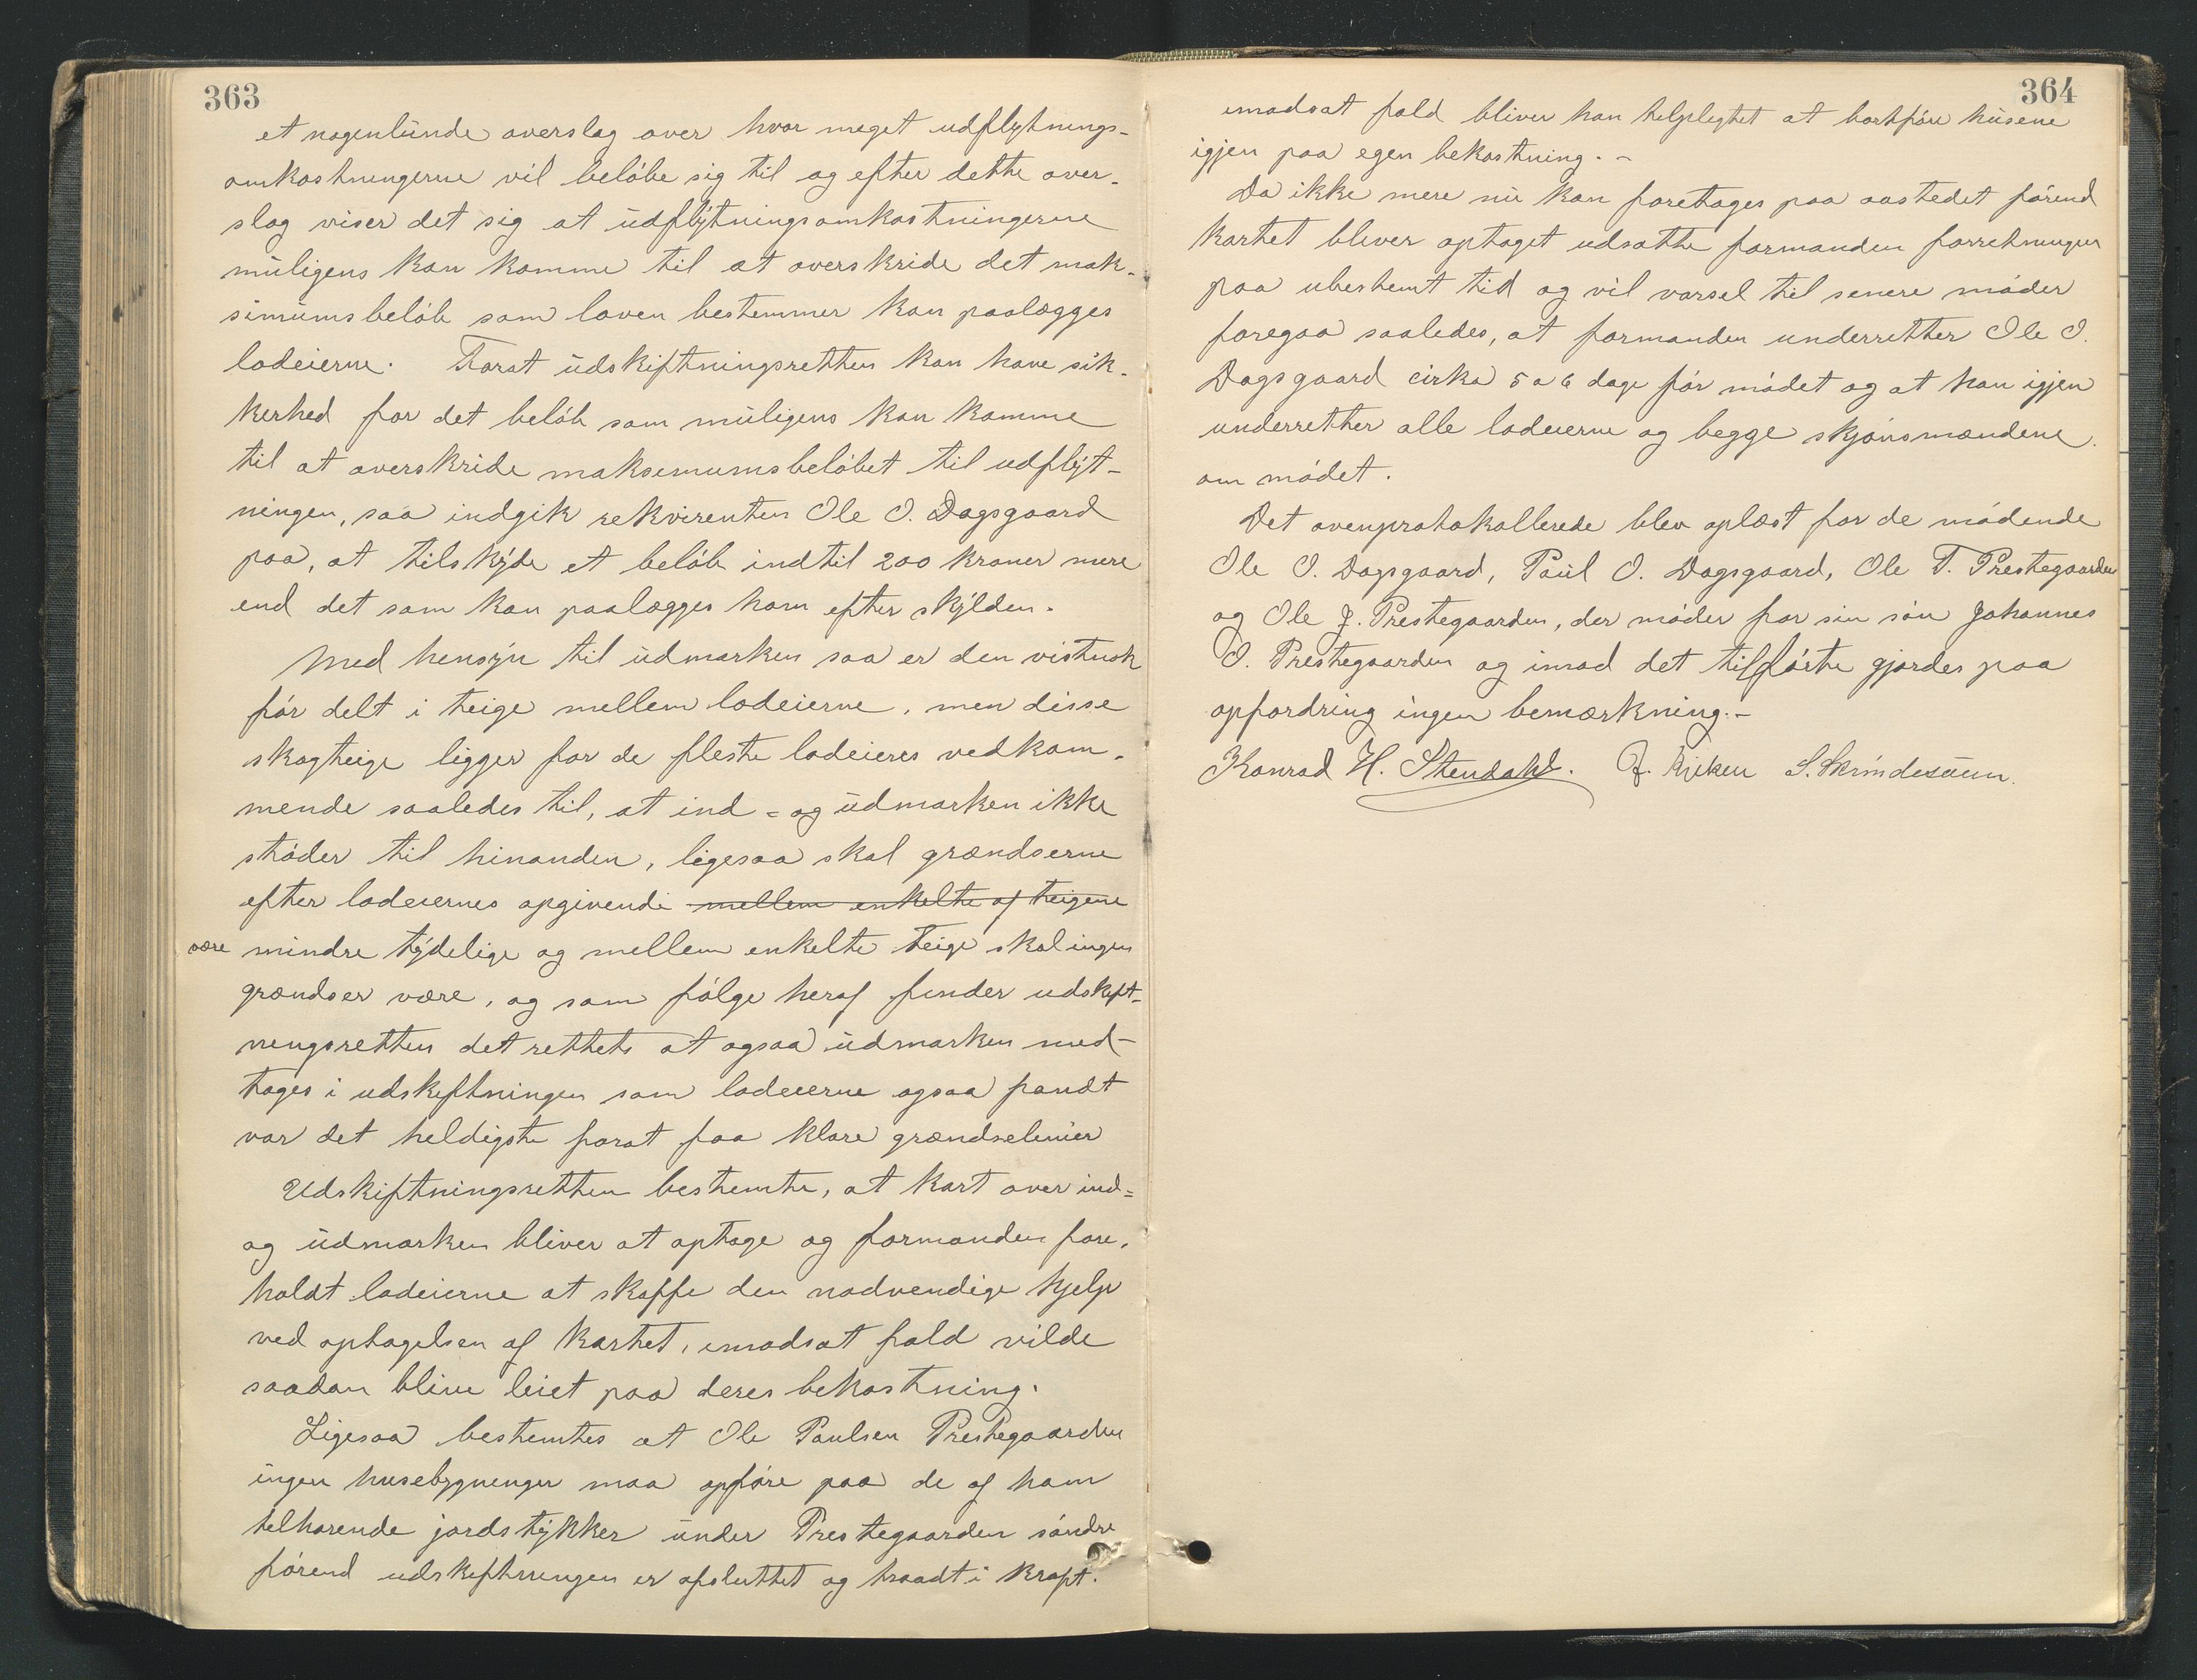 363
et nogenlunde overslag over hvor meget udflytnings-
omkostningerne vil beløbe sig til og efter dette over-
slag viser det sig at udflytningsomkostningerne
muligens kan komme til at overskride det mak-
simumsbeløb som loven bestemmer kan paalægges
lodeierne. Forat udskiftningsretten kan have sik-
kerhed for det beløb som muligens kan komme
til at overskride maksemumsbeløbet til udflyt-
ningen, saa indgik rekvirenten Ole O. Dagsgaard
paa, at tilskyde et beløb indtil 200 kroner mere
end det som kan paalægges ham efter skylden.
Med hensyn til udmarken saa er den vistnok
før delt i teige mellem lodeierne, men disse
skogteige ligger for de fleste lodeieres vedkom-
mende saaledes til, at ind- og udmarken ikke
støder til hinanden, ligesaa skal grændserne
efter lodeiernes opgivende mellem enkelte af teigene
være mindre tydelige og mellem enkelte teige skal ingen
grændser være, og som følge heraf finder udskift-
ningsretten det rettest at ogsaa udmarken med-
tages i udskiftningen som lodeierne ogsaa fandt
var det heldigste forat faa klare grændselinier
Udskiftningsretten bestemte, at kart over ind-
og udmarken bliver at optage og formanden fore-
holdt lodeierne at skaffe den nødvendige hjelp
ved optagelsen af kartet, imodsat fald vilde
saadan blive leiet paa deres bekostning.
Ligesaa bestemtes at Ole Paulsen Prestegaarden
ingen husebygninger maa opføre paa de af ham
tilhørende jordstykker under Prestegaarden søndre
førend udskiftningen er afsluttet og traadt i kraft.
364
imodsat fald bliver han tilpligtet at bortføre husene
igjen paa egen bekostning. -
Da ikke mere nu kan foretages paa aastedet førend
kartet bliver optaget udsatte formanden forretningen
paa ubestemt tid og vil varsel til senere møder
foregaa saaledes, at formanden underretter Ole O.
Dagsgaard cirka 5 a 6 dage før mødet og at han igjen
underretter alle lodeierne og begge skjønsmændene
om mødet.
Det ovenprotokollerede blev oplæst for de mødende
Ole O. Dagsgaard, Paul O. Dagsgaard, Ole T. Prestegaarden
og Ole J. Prestegaarden, der møder for sin søn Johannes
O. Prestegaarden og imod det tilførte gjordes paa
opfordring ingen bemærkning. -
Konrad H. Stendahl. J. Kviken S. Skrindesaun.